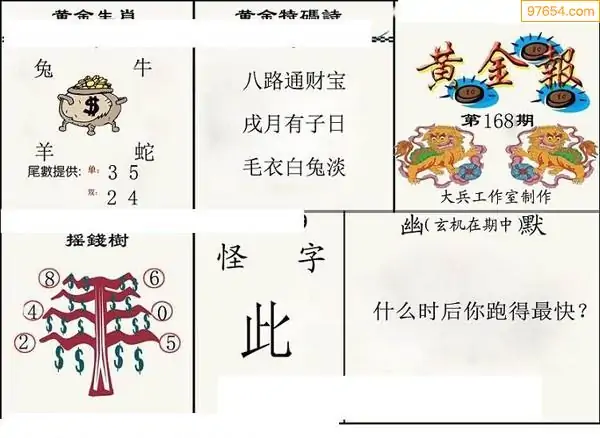 97654.com
黄金生肖
兔 牛
$
羊 蛇
尾數提供: 单: 3 5
双: 2 4
黄金特碼詩
八路通财宝
戌月有子日
毛衣白兔淡
黄金報
第168期
大兵工作室制作
摇錢樹
8 6
4 0
2 5
$ $ $ $ $ $ $ $ $ $ $ $
怪 字
此
幽(玄机在期中)默
什么时后你跑得最快?